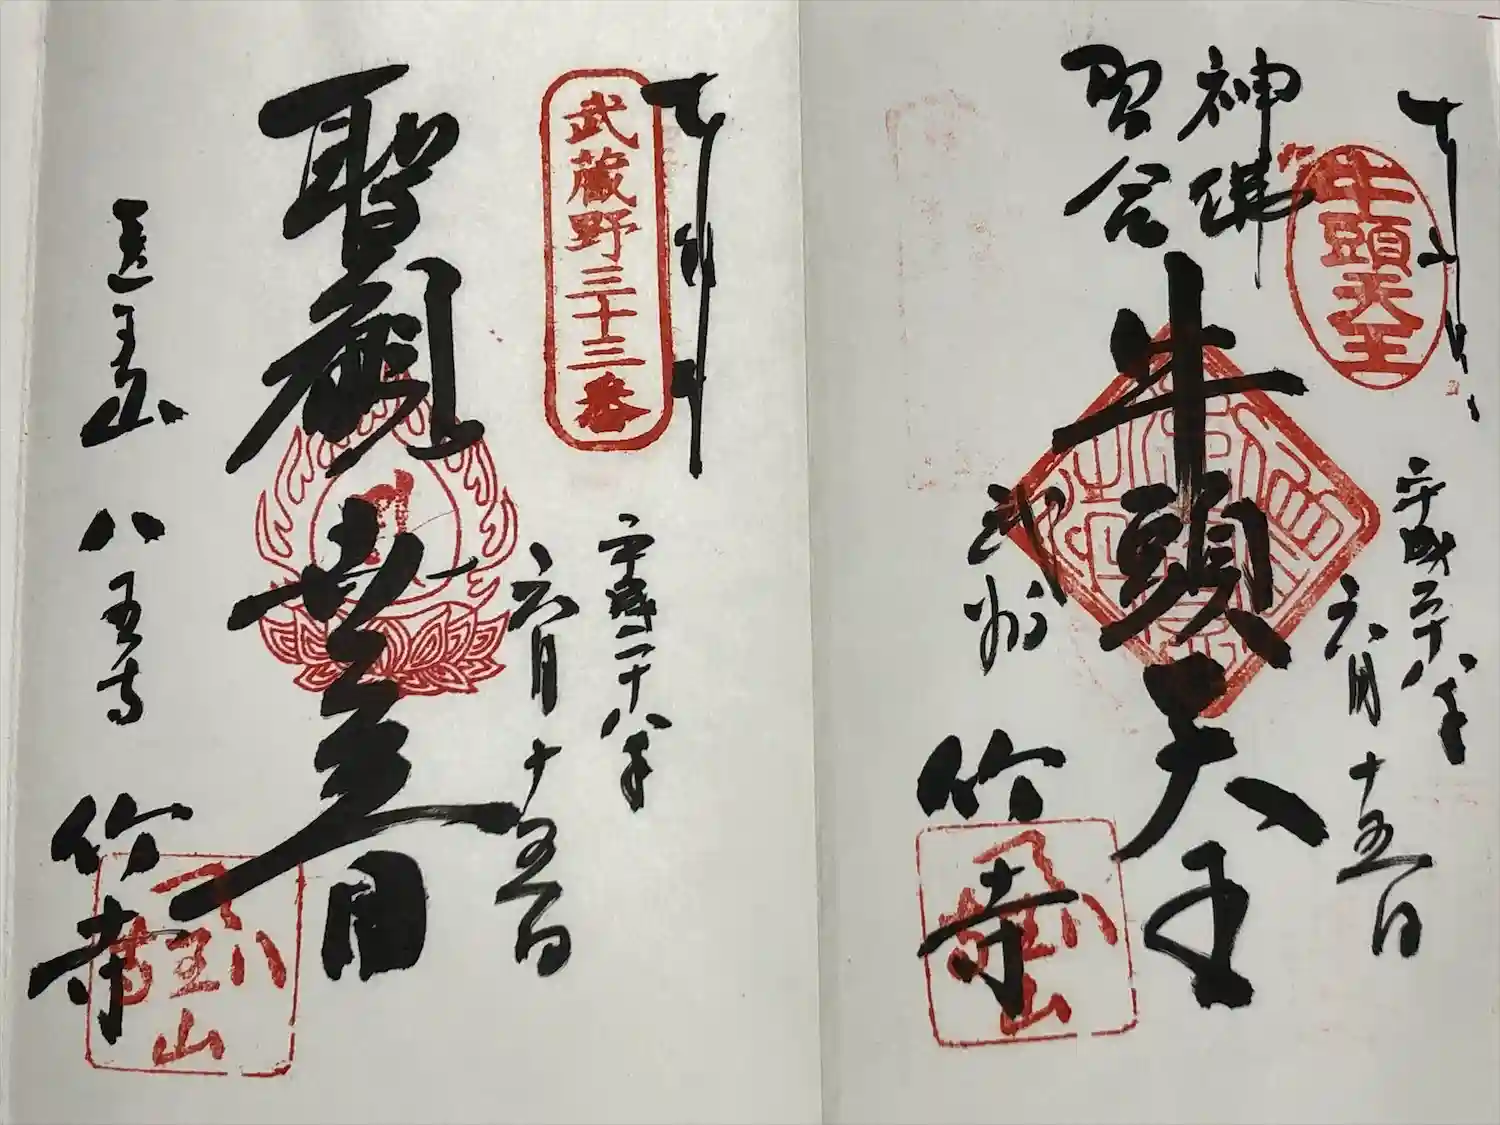 奉拝
牛頭天王
平成二十八年
六月十五日
神佛
習合
牛頭天王
武州
竹寺
奉拝
武蔵野三十三番
平成二十八年
六月十五日
聖観世音
医王山
八王寺
竹寺